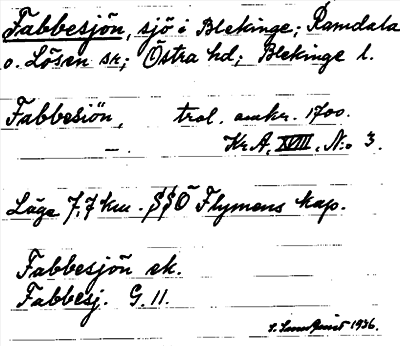 Fabbesjön, sjö i Blekinge; Ramdala
o. Lösen sn; Östra hd; Blekinge l.
Fabbesiön, trol. omkr. 1700.
Kr A, XVIII, N:o 3.
Läge 7,7 km. SSÖ Flymens kap.
Fabbesjön ek.
Fabbesj. G. 11.
1936.